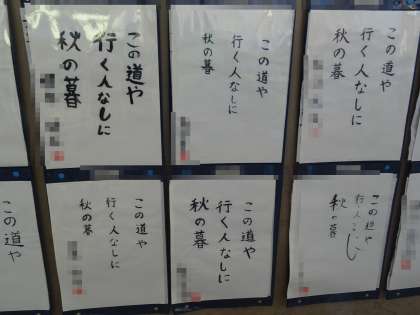 この道や
行く人なしに
秋の暮
この道や
行く人なしに
秋の暮
この道や
行く人なしに
秋の暮
この道や
この道や
行く人なしに
秋の暮
この道や
行く人なしに
秋の暮
この道や
行人なし
秋の暮